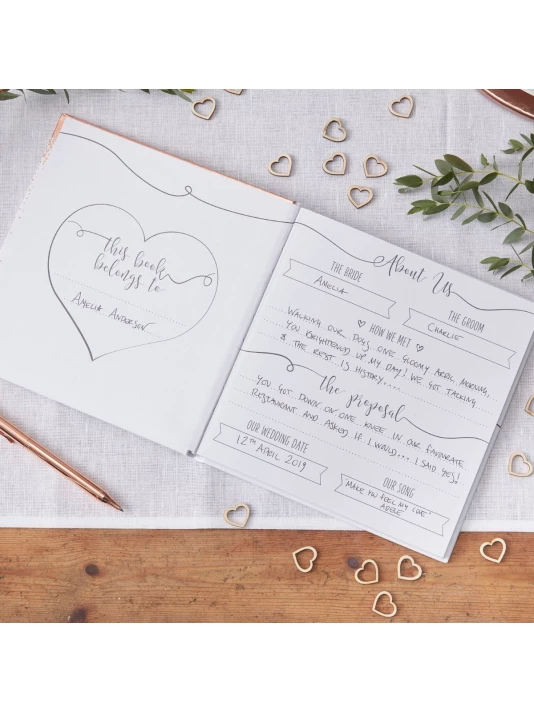 this book
belongs to
AMELIA ANDERSON
About Us
THE BRIDE
AMELIA
THE GROOM
CHARLIE
HOW WE MET
WALKING OUR DOGS ONE GLOOMY APRIL MORNING,
YOU BRIGHTENED UP MY DAY! WE GOT TALKING
& THE REST IS HISTORY....
the proposal
YOU GOT DOWN ON ONE KNEE IN OUR FAVOURATE
RESTAURANT AND ASKED IF I WOULD... I SAID YES!
OUR WEDDING DATE
12TH APRIL 2019
OUR SONG
MAKE YOU FEEL MY LOVE'
ADELE